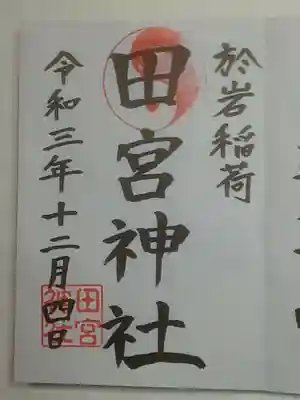 於岩稲荷
田宮神社
令和三年十二月四日
田宮